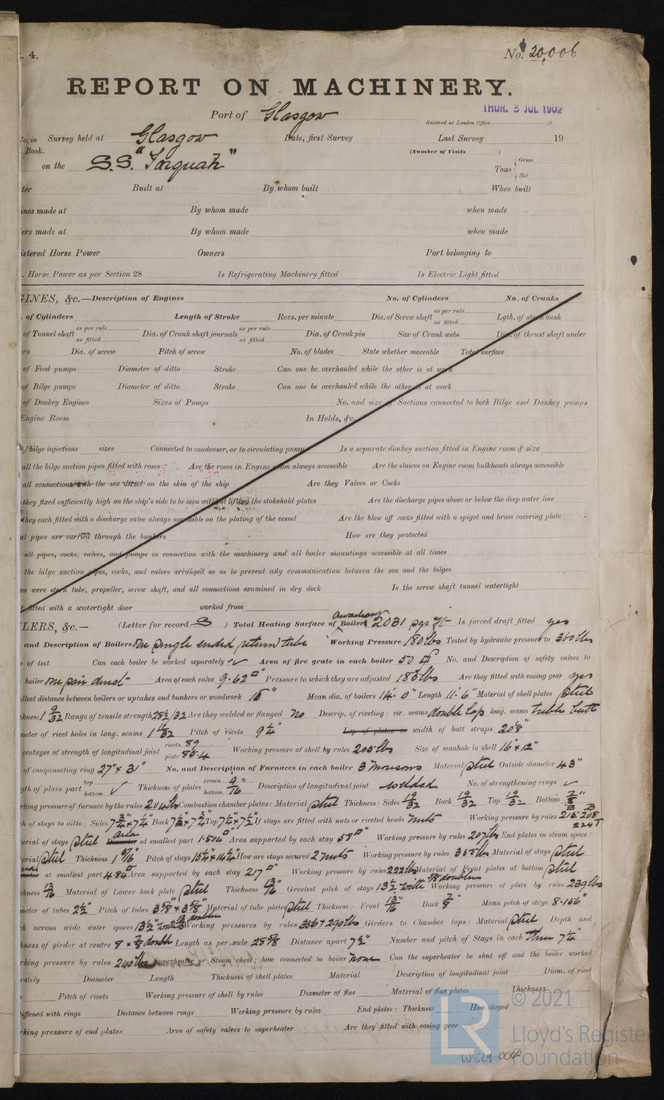 . 4.
No. 20,006
REPORT ON MACHINERY.
Port of Glasgow
THUR. 3 JUL 1902
Received at London Office
No. in Survey held at Glasgow Date, first Survey Last Survey 19
Book. (Number of Visits )
on the S.S. "Tarquah" Tons { Gross Net
Built at By whom built When built
ines made at By whom made when made
ers made at By whom made when made
istered Horse Power Owners Port belonging to
. Horse Power as per Section 28 Is Refrigerating Machinery fitted Is Electric Light fitted
GINES, &c.—Description of Engines No. of Cylinders No. of Cranks
. of Cylinders Length of Stroke Revs. per minute Dia. of Screw shaft as per rule as fitted Lgth. of stern bush
of Tunnel shaft as per rule as fitted Dia. of Crank shaft journals as per rule as fitted Dia. of Crank pin Size of Crank webs Dia. of thrust shaft under
rs Dia. of screw Pitch of screw No. of blades State whether moveable Total surface
of Feed pumps Diameter of ditto Stroke Can one be overhauled while the other is at work
of Bilge pumps Diameter of ditto Stroke Can one be overhauled while the other is at work
of Donkey Engines Sizes of Pumps No. and size of Suctions connected to both Bilge and Donkey pumps
Engine Room In Holds, &c.
bilge injections sizes Connected to condenser, or to circulating pump Is a separate donkey suction fitted in Engine room & size
all the bilge suction pipes fitted with roses Are the roses in Engine room always accessible Are the sluices on Engine room bulkheads always accessible
all connections with the sea direct on the skin of the ship Are they Valves or Cocks
they fixed sufficiently high on the ship's side to be seen without lifting the stokehold plates Are the discharge pipes above or below the deep water line
they each fitted with a discharge valve always accessible on the plating of the vessel Are the blow off cocks fitted with a spigot and brass covering plate
at pipes are carried through the bunkers How are they protected
all pipes, cocks, valves, and pumps in connection with the machinery and all boiler mountings accessible at all times
the bilge suction pipes, cocks, and valves arranged so as to prevent any communication between the sea and the bilges
en were stern tube, propeller, screw shaft, and all connections examined in dry dock Is the screw shaft tunnel watertight
fitted with a watertight door worked from
LERS, &c.— (Letter for record S ) Total Heating Surface of Auxiliary Boiler 2031 sq ft Is forced draft fitted yes
and Description of Boilers One single ended, return tube Working Pressure 180 lbs Tested by hydraulic pressure to 360 lbs
of test Can each boiler be worked separately ✓ Area of fire grate in each boiler 50 □' No. and Description of safety valves to
boiler one pair direct Area of each valve 9.62□" Pressure to which they are adjusted 185 lbs Are they fitted with easing gear yes
llest distance between boilers or uptakes and bunkers or woodwork 18" Mean dia. of boilers 14'.0" Length 11'.6" Material of shell plates Steel
ckness 1 9/32 Range of tensile strength 28½/32 Are they welded or flanged No Descrip. of riveting: cir. seams double lap long. seams treble butt
meter of rivet holes in long. seams 1 11/32 Pitch of rivets 9¼" Lap of plates or width of butt straps 20⅛"
centages of strength of longitudinal joint rivets 89 plate 85.4 Working pressure of shell by rules 205 lbs Size of manhole in shell 16 × 12"
of compensating ring 27" × 31" No. and Description of Furnaces in each boiler 3 Morisons Material Steel Outside diameter 43"
gth of plain part top bottom Thickness of plates crown bottom 9/16" Description of longitudinal joint welded No. of strengthening rings ✓
rking pressure of furnace by the rules 214 lbs Combustion chamber plates: Material Steel Thickness: Sides 19/32 Back 19/32 Top 19/32 Bottom
h of stays to ditto: Sides Back Top If stays are fitted with nuts or riveted heads Nuts Working pressure by rules
erial of stays Steel Area at smallest part 1.814□" Area supported by each stay 58□" Working pressure by rules 207 lbs End plates in steam space:
erial Steel Thickness Pitch of stays How are stays secured 2 nuts Working pressure by rules Material of stays Steel
at smallest part Area supported by each stay 217□" Working pressure by rules 222 lbs Material of Front plates at bottom Steel
kness 13/16 Material of Lower back plate Steel Thickness 13/16 Greatest pitch of stays Working pressure of plate by rules 239 lbs
meter of tubes 2½" Pitch of tubes Material of tube plates Steel Thickness: Front 13/16 Back Mean pitch of stays
ch across wide water spaces Working pressures by rules Girders to Chamber tops: Material Steel Depth and
kness of girder at centre Length as per rule Distance apart 7½" Number and pitch of Stays in each three 7¼
rking pressure by rules 240 lbs Superheater or Steam chest; how connected to boiler None Can the superheater be shut off and the boiler worked
rately Diameter Length Thickness of shell plates Material Description of longitudinal joint Diam. of rivet
Pitch of rivets Working pressure of shell by rules Diameter of flue Material of flue plates Thickness
iffened with rings Distance between rings Working pressure by rules End plates: Thickness How stayed
rking pressure of end plates Area of safety valves to superheater Are they fitted with easing gear
LR
© 2021
Lloyd's Register
Foundation